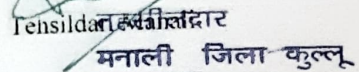 Tehsildar तहसीलदार
मनाली जिला कुल्लू